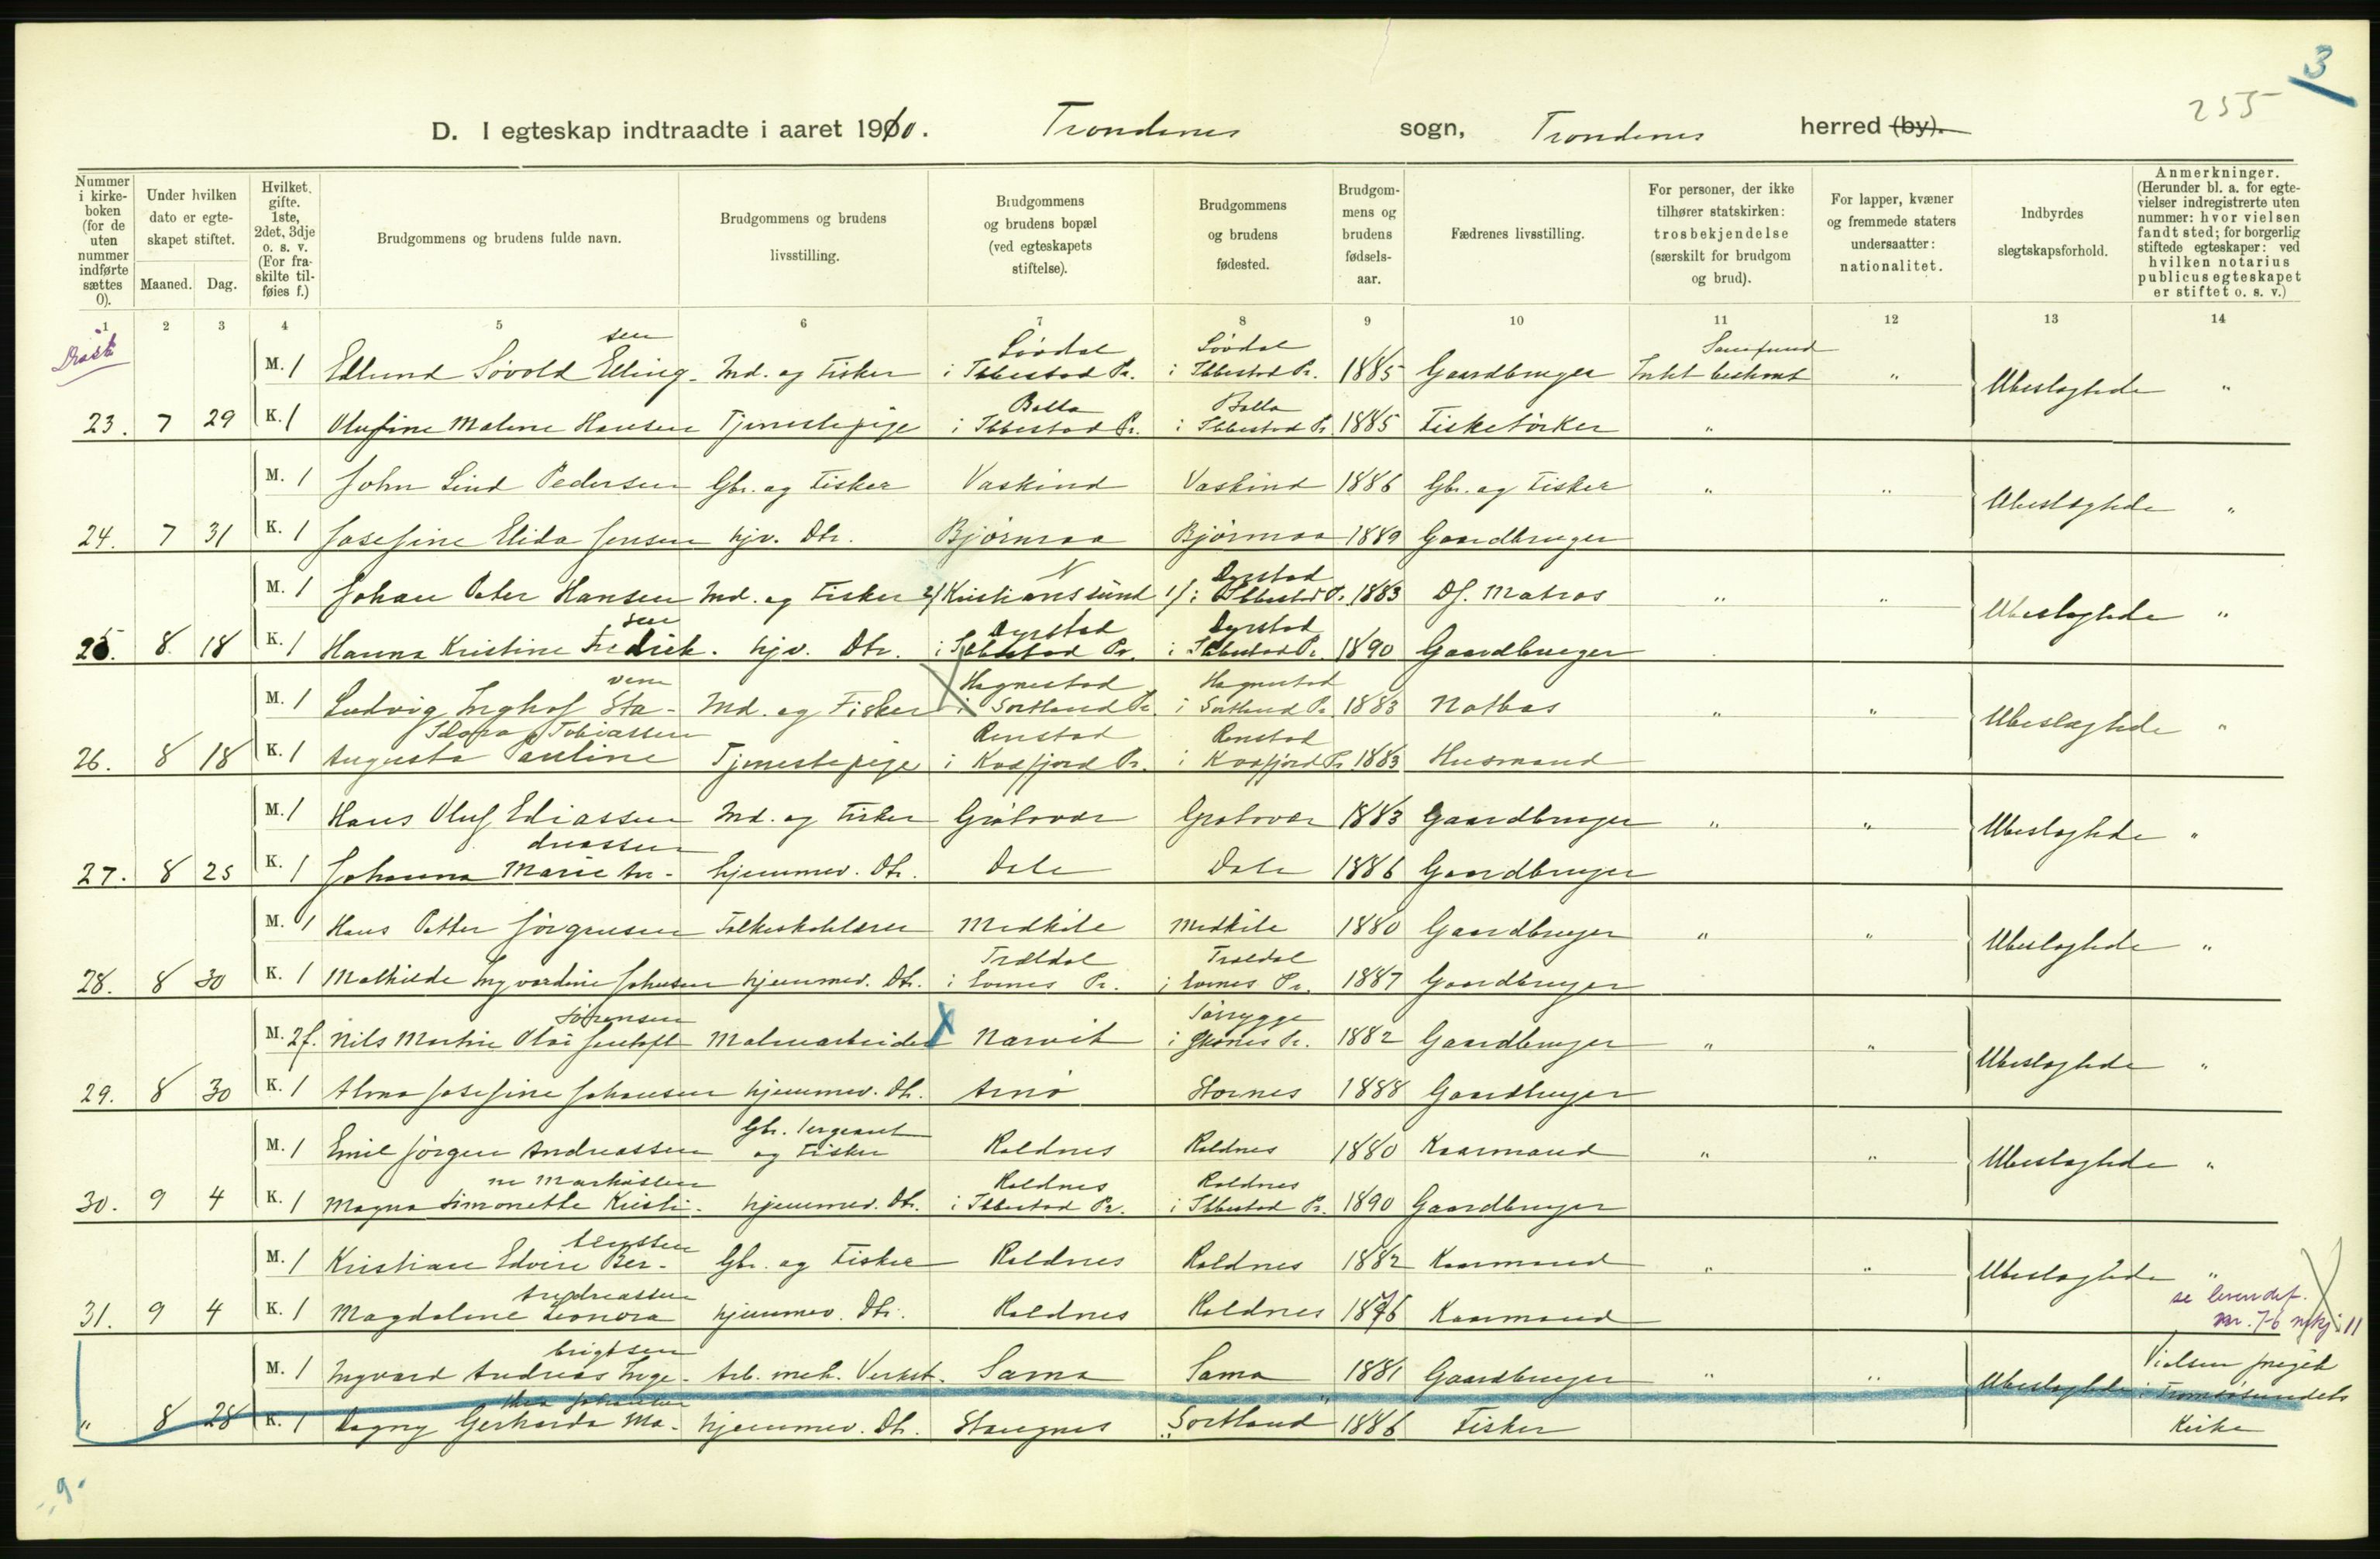 3
255
D. I egteskap indtraadte i aaret 1910. Trondenes sogn, Trondenes herred (by).
Nummer i kirkeboken (for de uten nummer indførte sættes 0).
Under hvilken dato er egteskapet stiftet.
Maaned. Dag.
Hvilket gifte. 1ste, 2det, 3dje o. s. v. (For fraskilte tilføies f.)
Brudgommens og brudens fulde navn.
Brudgommens og brudens livsstilling.
Brudgommens og brudens bopæl (ved egteskapets stiftelse).
Brudgommens og brudens fødested.
Brudgommens og brudens fødselsaar.
Fædrenes livsstilling.
For personer, der ikke tilhører statskirken: trosbekjendelse (særskilt for brudgom og brud).
For lapper, kvæner og fremmede staters undersaatter: nationalitet.
Indbyrdes slegtskapsforhold.
Anmerkninger. (Herunder bl. a. for egtevielser indregistrerte uten nummer: hvor vielsen fandt sted; for borgerlig stiftede egteskaper: ved hvilken notarius publicus egteskapet er stiftet o. s. v.)
1 2 3 4 5 6 7 8 9 10 11 12 13 14
M. 1 Edlund Søvold Ellingsen Ind. og Fisker Løvdal i Ibbestad Pr. Løvdal i Ibbestad Pr. 1885 Gaardbruger " Ubeslægtede "
23. 7 29 K. 1 Olufine Malene Hansen Tjenestepige Balta i Ibbestad Pr. Balta i Ibbestad Pr. 1885 "
M. 1 John Lind Pedersen Gbr. og Fisker Vaskind Vaskind 1886 Gbr. og Fisker " " Ubeslægtede "
24. 7 31 K. 1 Josefine Elida Jensen hjv. Dtr. Bjørnraa Bjørnraa 1889 Gaardbruger
M. 1 Johan Peter Hansen Ind. og Fisker 2/ Kristianssund N 1/ Dyrstad i Ibbestad Pr. 1883 Df. Matros " " Ubeslægtede "
25. 8 18 K. 1 Hanna Kristine Fredriksen hjv. Dtr. Dyrstad i Ibbestad Pr. Dyrstad i Ibbestad Pr. 1890 Gaardbruger
M. 1 Ludvig Inghof Stavem Ind. og Fisker Hognestad i Sortland Pr. Hognestad i Sortland Pr. 1883 Notbas " " Ubeslægtede "
26. 8 18 K. 1 Augusta Pauline Tobiassen Tjenestepige Renstad i Kvæfjord Pr. Renstad i Kvæfjord Pr. 1883 Husmand
M. 1 Hans Oluf Ediassen Ind. og Fisker Grøtavær Grøtavær 1883 Gaardbruger " " Ubeslægtede "
27. 8 25 K. 1 Johanna Marie Andreassen hjemmev. Dtr. Dale Dale 1886 Gaardbruger
M. 1 Hans Petter Jørgensen Folkeskolelærer Medkile Medkile 1880 Gaardbruger " " Ubeslægtede "
28. 8 30 K. 1 Mathilde Ingvardine Johnsen hjemmev. Dtr. Trældal i Evenes Pr. Trældal i Evenes Pr. 1887 Gaardbruger
M. 2f. Nils Martin Olai Jentoft Sørensen Malmarbeider Narvik 1882 Gaardbruger " " Ubeslægtede "
29. 8 30 K. 1 Alma Josefine Johansen hjemmev. Dtr. Arnø Stornes 1888 Gaardbruger
M. 1 Emil Jørgen Andreassen Gbr. Sergeant og Fisker Roldnes Roldnes 1880 Kaarmand " " Ubeslægtede "
30. 9 4 K. 1 Magna Simonette Kristine Markussen hjemmev. Dtr. Roldnes i Ibbestad Pr. Roldnes i Ibbestad Pr. 1890 Gaardbruger
M. 1 Kristian Edvin Berntsen Gbr. og Fisker Roldnes Roldnes 1882 Kaarmand " " Ubeslægtede "
31. 9 4 K. 1 Magdalene Leonora Andreassen hjemmev. Dtr. Roldnes Roldnes 1876 Kaarmand
M. 1 Ingvard Andreas Ingebrigtsen Arb. mek. Verkst. Sama Sama 1881 Gaardbruger " " Ubeslægtede Vielsen foregik i Tromsøsundets Kirke
" 8 28 K. 1 Dagny Gerharda Mathea Johansen hjemmev. Dtr. Stangnes Sortland 1886 Fisker
9.